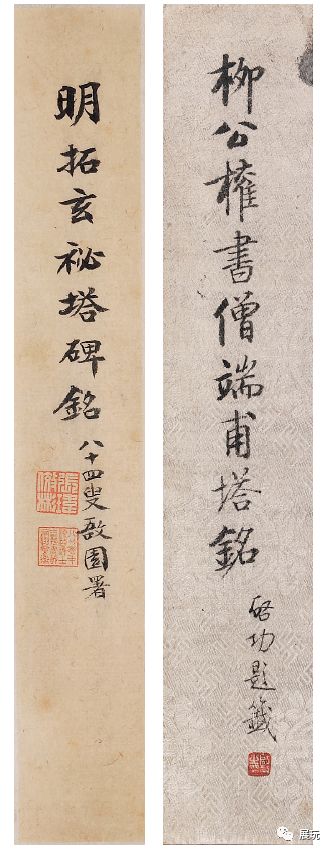 柳公權書僧端甫塔銘
啓功題籤
明拓玄祕塔碑銘
八十四叟啟園署
展玩